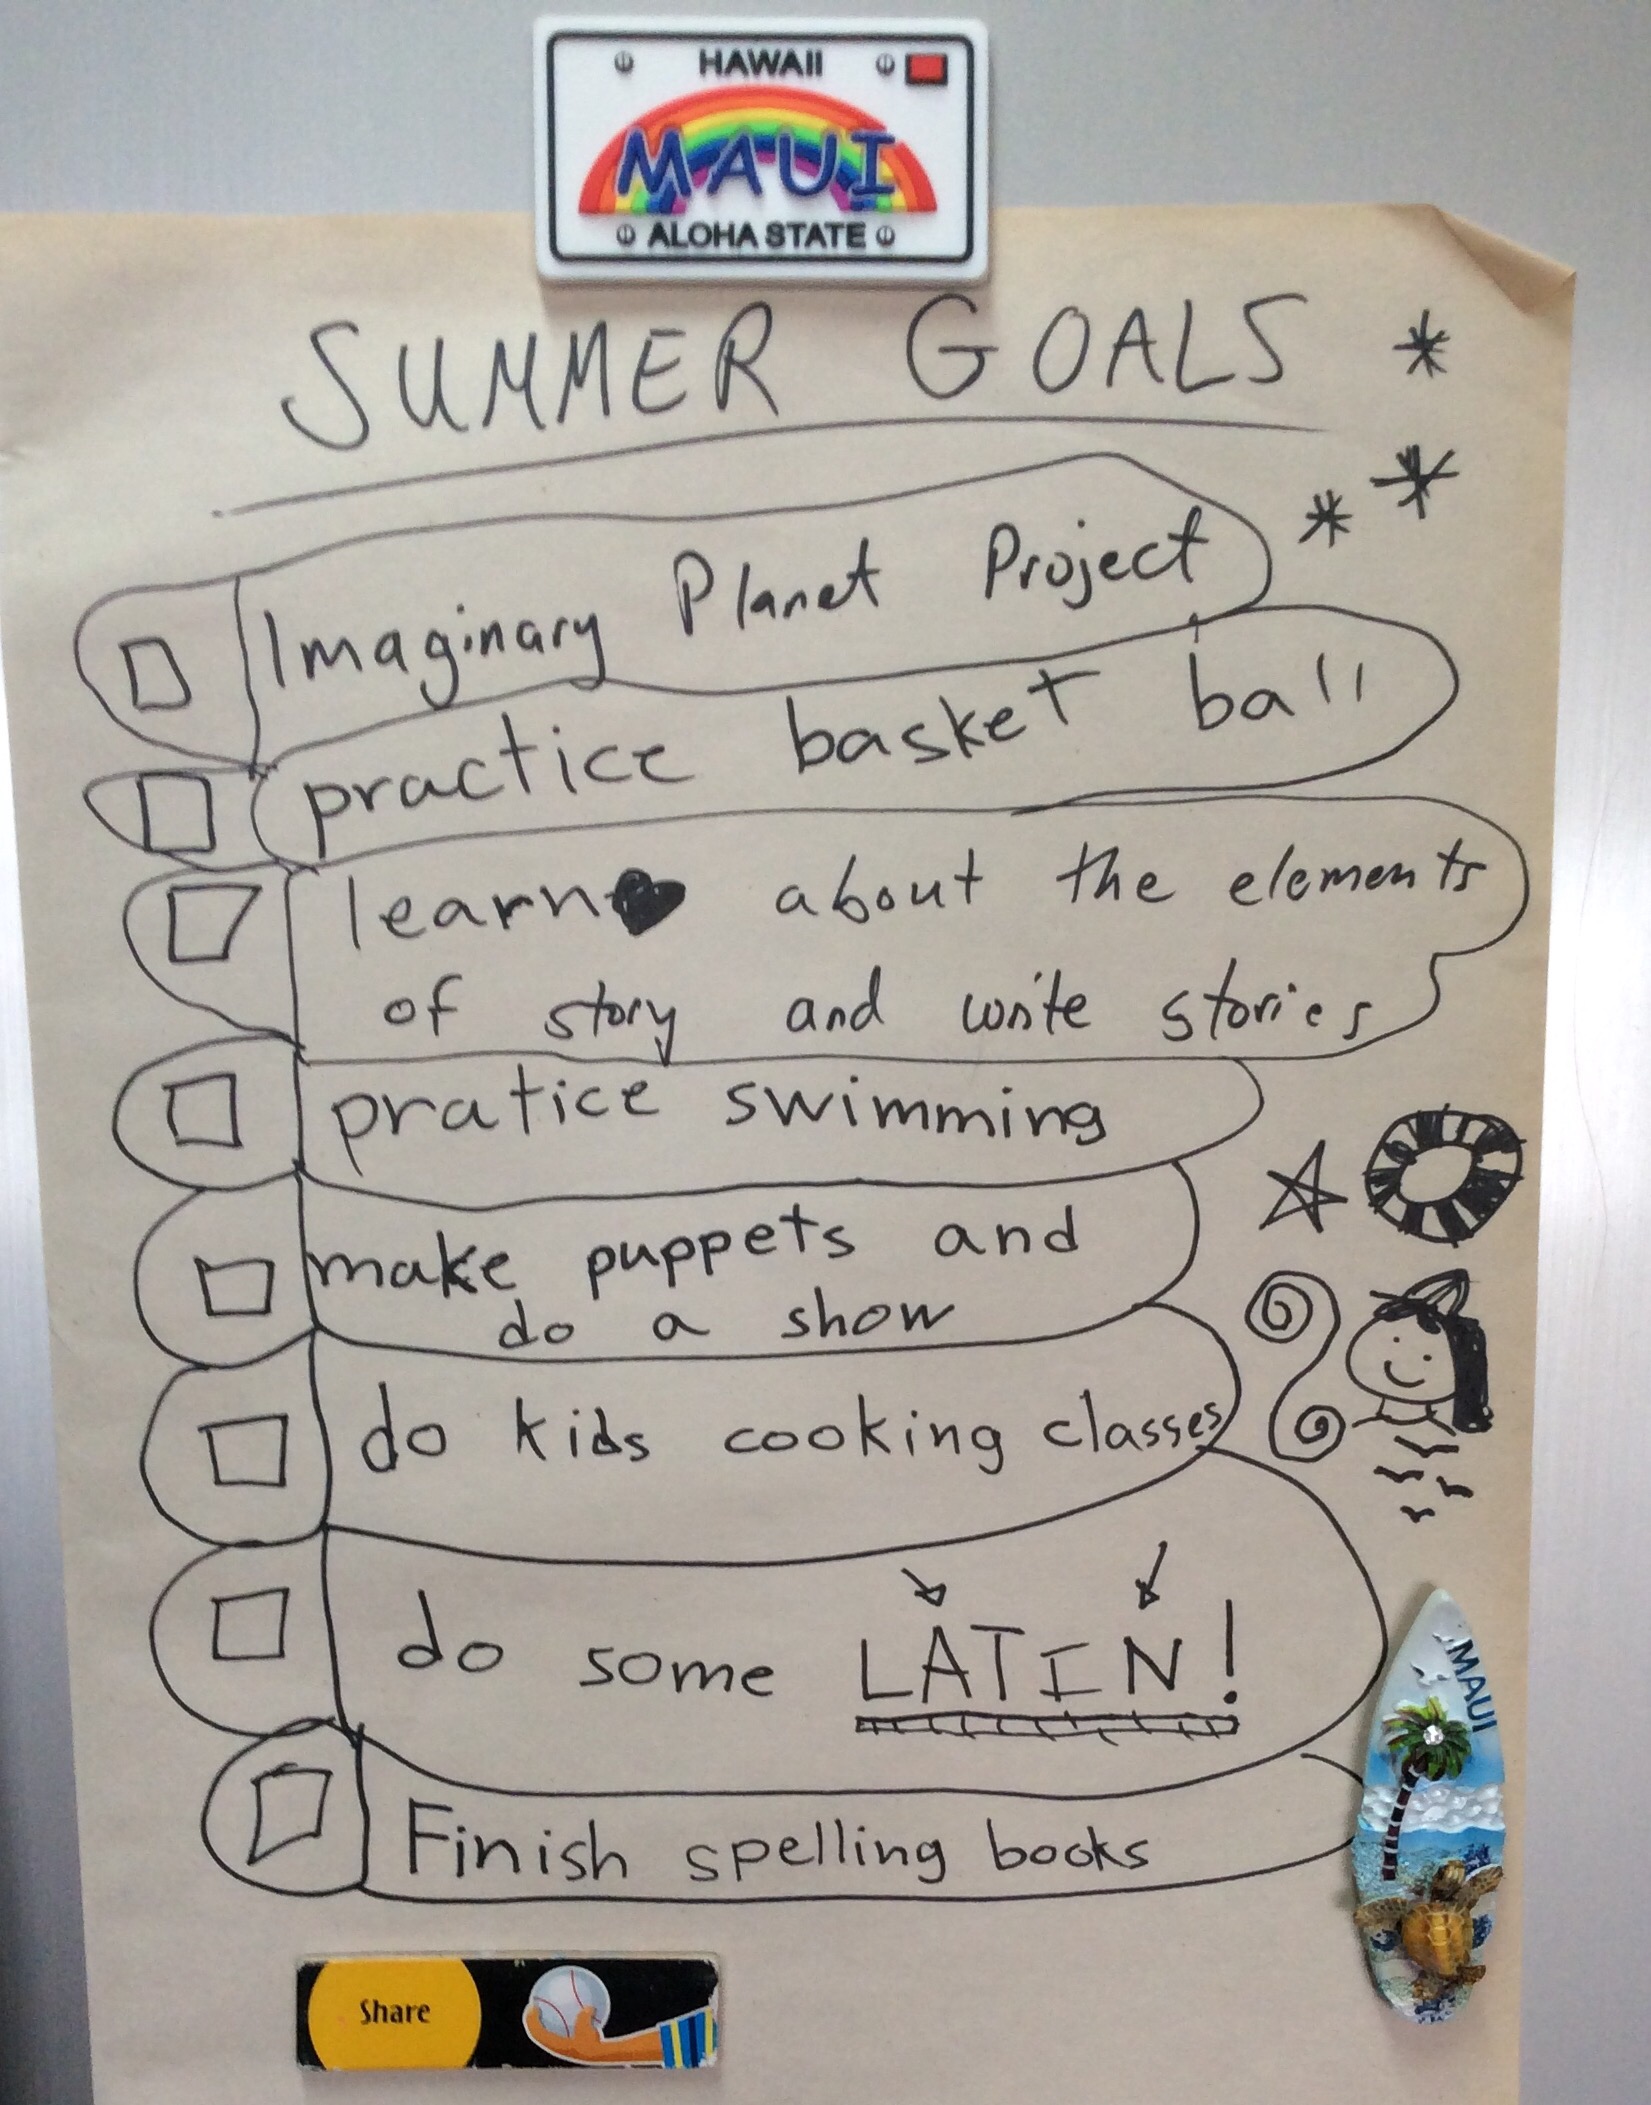 HAWAII
MAUI
ALOHA STATE
SUMMER GOALS
Imaginary Planet Project
practice basket ball
learn about the elements
of story and write stories
pratice swimming
make puppets and
do a show
do kids cooking classes
do some LATIN!
Finish spelling books
MAUI
Share